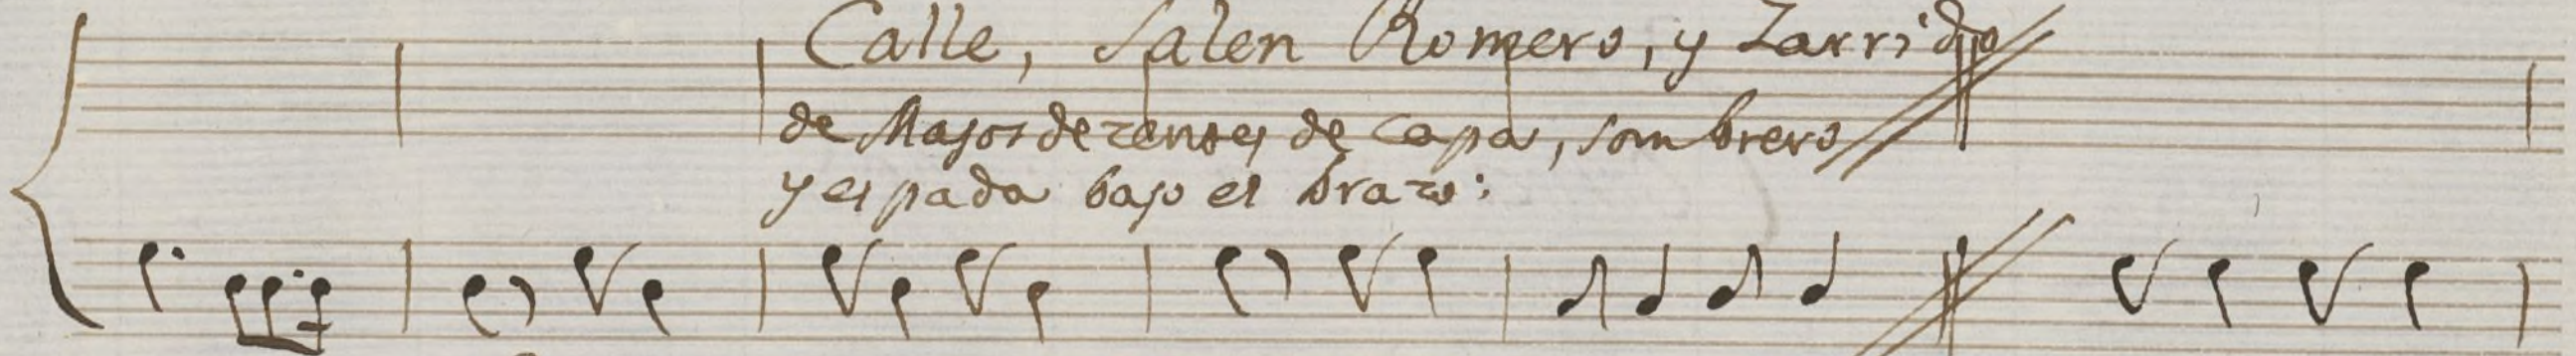 Calle, Salen Romero, y Zarrido
de Majos decentes de capa, sombrero
y espada bajo el brazo: